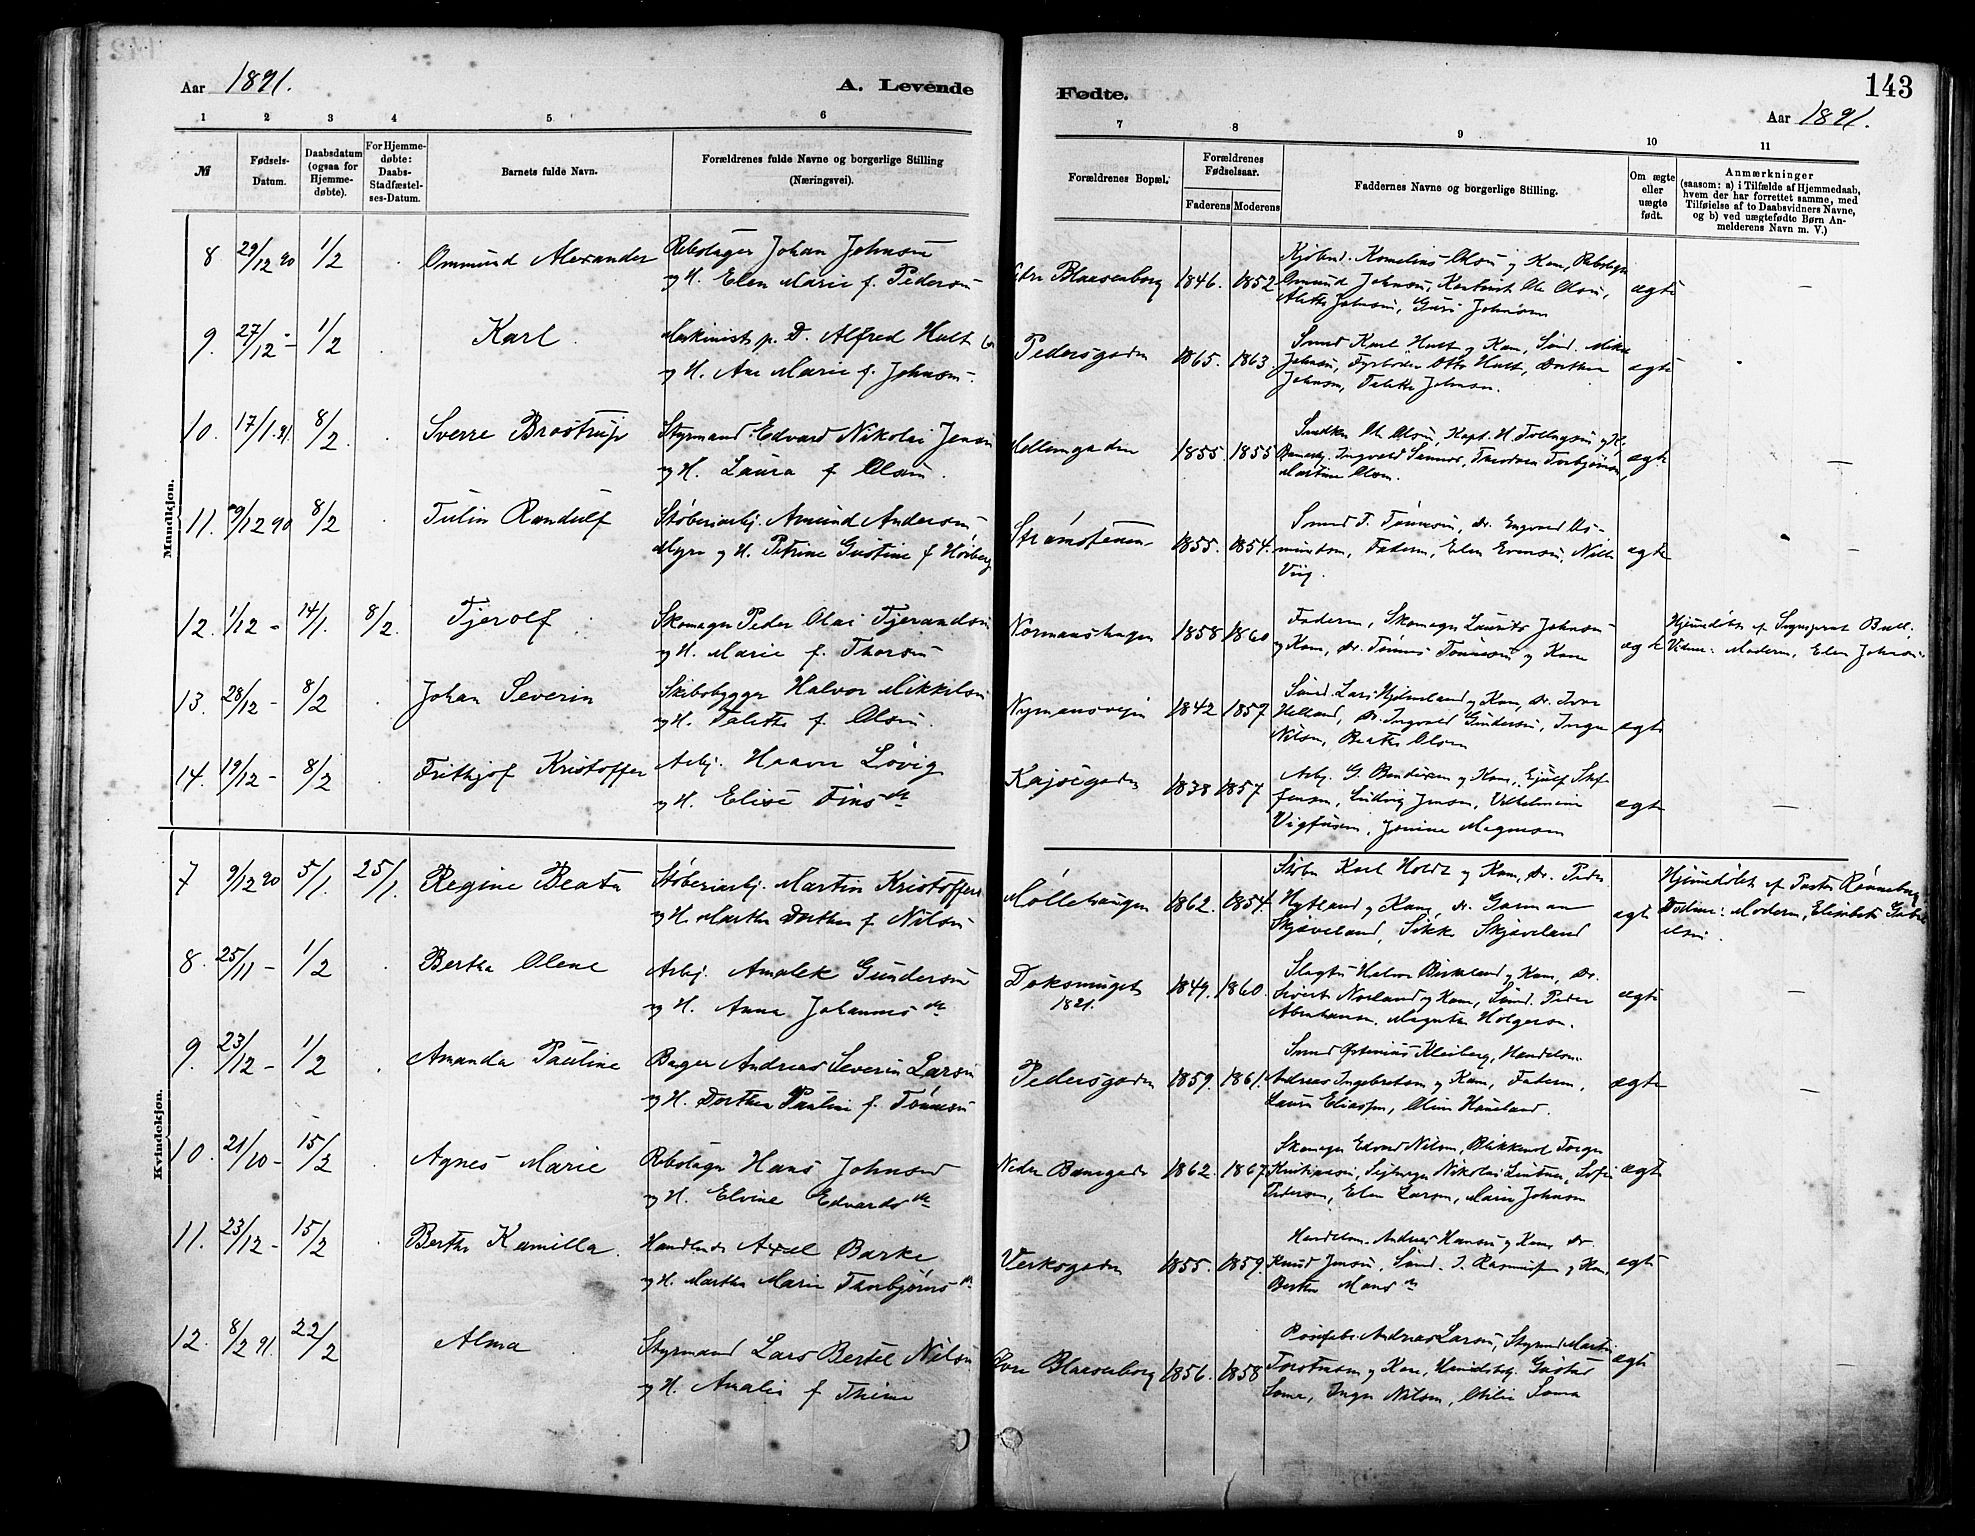 143
Aar 1891. A. Levende Fødte. Aar 1891.
1 2 3 4 5 6 7 8 9 10 11
№
Fødsels-Datum.
Daabsdatum (ogsaa for Hjemmedøbte).
For Hjemmedøbte: Daabs-Stadfæstelses-Datum.
Barnets fulde Navn.
Forældrenes fulde Navne og borgerlige Stilling (Næringsvei).
Forældrenes Bopæl.
Forældrenes Fødselsaar.
Faderens Moderens
Faddernes Navne og borgerlige Stilling.
Om ægte eller uægte født.
Anmærkninger
(saasom: a) i Tilfælde af Hjemmedaab,
hvem der har forrettet samme, med
Tilføielse af to Daabsvidners Navne,
og b) ved uægtefødte Børn Anmelderens Navn m. V.)
Mandkjøn.
8 29/12 90 1/2 Ommund Alexander Rebslager Johan Johnsen
og H. Elen Marie f. Pedersen
Blaasenborg 1846. 1852
Ommund Johnsen, Ole Olsen,
Johnsen, Guri Johnsen
ægte —
9. 27/12 - 1/2 Karl Maskinist p. D. Alfred Hult
og H. Ane Marie f. Johnsen.
Pedersgaden 1865. 1863.
Smed Karl Hult og Kone,
Johnsen, Fyrbøder Otto Hult, Dorthea
Johnsen, Johnsen.
ægte
10. 17/1 91. 8/2 Sverre Brostrup Styrmand Edvard Nikolai Jensen
og H. Laura f. Olsen.
Møllergaden 1855. 1855
Snedker Ole Olsen, Kapt. H. og H,
Ingvald Theodora Torbjørnsen,
Martine Olsen.
ægte —
11. 9/12 90 8/2 Tulin Randulf Støberiarbj. Amund Andersen
Myre og H. Petrine Gustine f. Høiberg
Strømstenen 1855. 1854.
Smed T. Tønnesen, do. Engvald Asmundsen, Faderen, Elen Evensen,
Viig.
ægte
12. 1/12 - 14/1. 8/2. Tjerolf Skomager Peder Olai Tjerandsen
og H. Marie f. Thorsen
Normanshagen 1858 1860
Faderen, Skomager Laurits Johnsen
og Kone, do. Tønnes Tønnesen og Kone
ægte
Hjemdøbt af Sogneprest Bull.
Vidner: Moderen, Elen Johnsen
13. 28/12 - 8/2 Johan Severin Skibsbygger Halvor Mikkelsen
og H. Talette f. Olsen.
Nymansveien 1842 1857
Lars Hjelmeland og Kone, do. Iver
Helland, do. Ingvald Gundersen, Inger
Nilsen, Berthe Olsen
ægte
14. 19/12 - 8/2 Frithjof Kristoffer Arbj. Haaver Løvig
og H. Elise Finsdr.
Kaisegaden 1838 1857
Arbj. G. Bendixen og Kone, Ejulf Steffensen, Ludvig Jensen, Vilhelmine
Vigfusen, Jonine Magnusen
ægte —
Kvindekjøn.
7 9/12 90 5/1. 25/1. Regine Beata Støberiarbj. Martin Kristoffers.
og H. Marthe Dorthea f. Nilsen
Møllehaugen 1862. 1854.
Støber Karl Holdt og Kone, do. Peder
Hytland og Kone, do. Garman
Skjæveland, Sikke Skjæveland
ægte
Hjemdøbt af Pastor Rønneberg
Vidne: Moderen, Elisabeth Gabrielsen.
8. 25/11 - 1/2 Bertha Olene Arbj. Amalek Gundersen
og H. Anna Johannesdr.
Doksmuget
1821.
1849. 1860.
Slagter Halvor Birkeland og Kone, do.
Sivert Norland og Kone, Peder
Abrahamsen, Holgersen.
ægte —
9. 23/12 - 1/2 Amanda Pauline Bager Andreas Severin Larsen
og H. Dorthea Pauline f. Tønnesen
Pedersgaden 1859. 1861.
Smed Østenius Kleiberg, Handelsm.
Andreas Ingebretsen og Kone, Faderen,
Laura Eliassen, Oline Haueland.
ægte —
10. 21/10 - 15/2 Agnes Marie Rebslager Hans Johnsen
og H. Elvine Edvardsdr.
Nedre Banegade 1862. 1867
Skomager Edvard Nilsen, Blikkensl. Torger
Kristiansen, Nikolai Sofie
Pedersen, Elen Larsen, Marie Johnsen
ægte
11. 23/12 - 15/2 Berthe Kamilla. Handlende Axel Barke
og H. Martha Marie Thorbjørnsdr.
Verksgaden 1855. 1859.
Handelsm. Andreas Hansen og Kone, do.
Knud Jensen, J. Rasmussen og Kone,
Berthe Mansdr.
ægte —
12. 8/2 91. 22/2 Alma Styrmand Lars Bertel Nilsen
og H. Amalie f. Thime
Øvre Blaasenborg 1856. 1858
Andreas Larsen, Styrmand Martin
Torstensen og Kone, Gustav
Soma, Inger Nilsen, Otilie Soma
ægte —